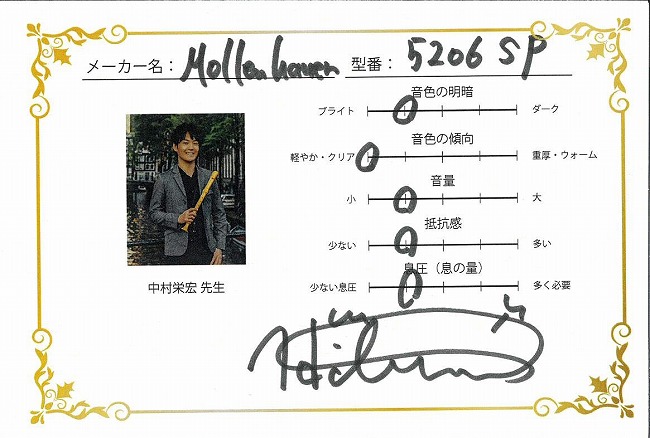 メーカー名： Mollenhauer 型番： 5206 SP
音色の明暗
ブライト ダーク
音色の傾向
軽やか・クリア 重厚・ウォーム
音量
小 大
抵抗感
少ない 多い
息圧（息の量）
少ない息圧 多く必要
中村栄宏 先生